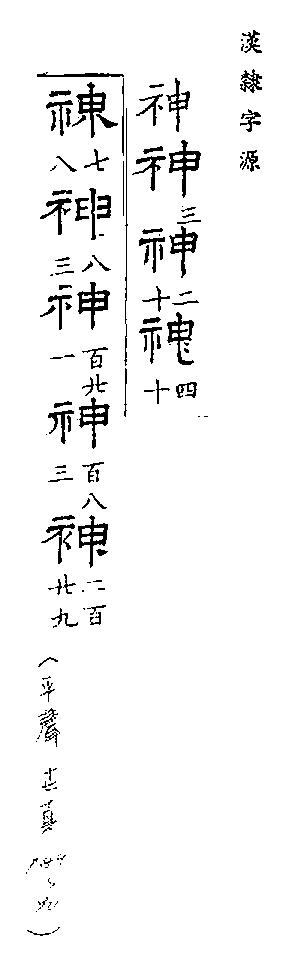 漢隸字源
神神三神二十神四十
神七八神八三神百廿一神百八三神二百廿九
(平聲 真